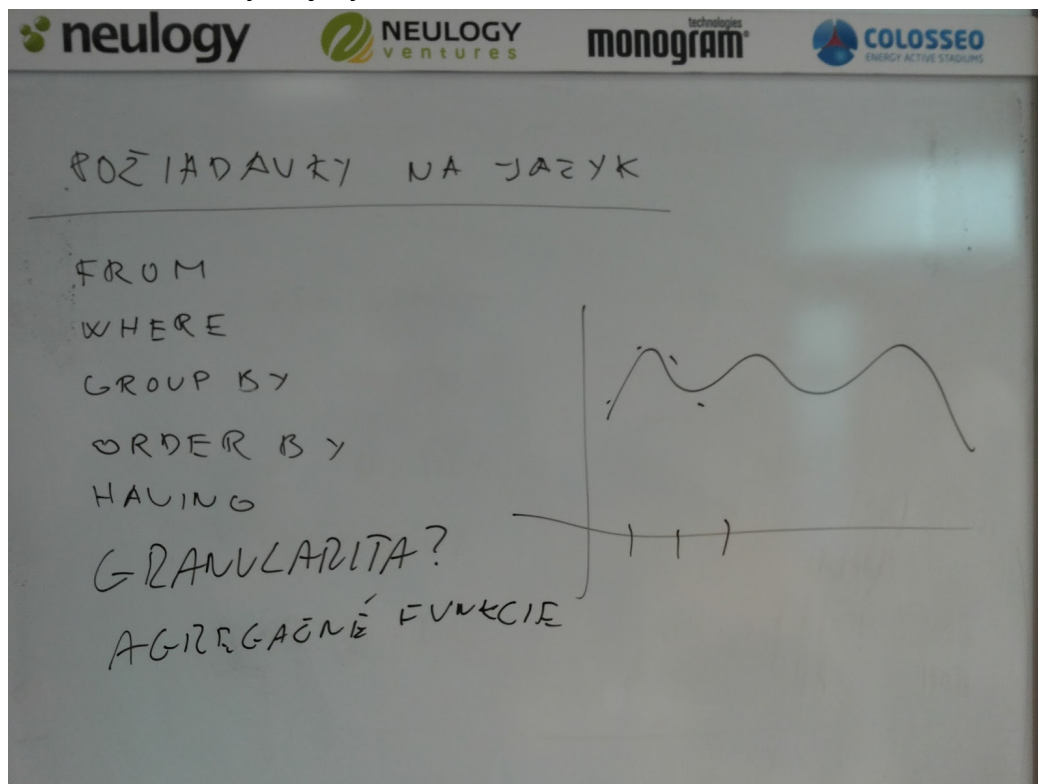 neulogy
NEULOGY
ventures
technologies
monogram®
COLOSSEO
ENERGY ACTIVE STADIUMS
POŽIADAVKY NA JAZYK
FROM
WHERE
GROUP BY
ORDER BY
HAVING
GRANULARITA?
AGREGAČNÉ FUNKCIE